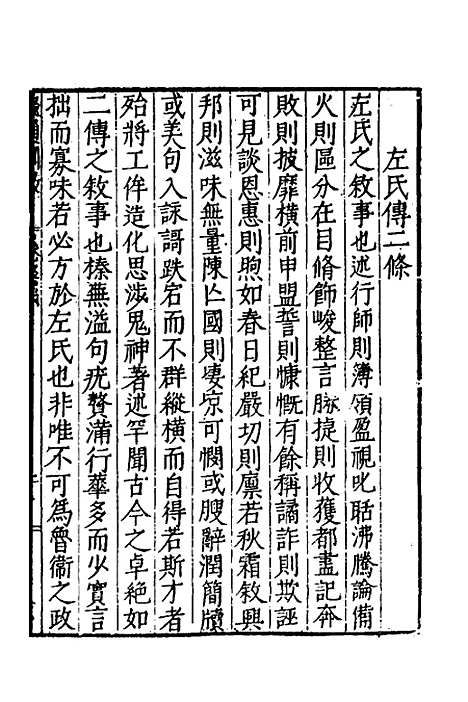 左氏傳二條
左氏之敘事也述行師則簿領盈視叱聒沸騰論備
火則區分在目脩飾峻整言勝捷則收獲都盡記奔
敗則披靡橫前申盟誓則慷慨有餘稱譎詐則欺誣
可見談恩惠則煦如春日紀嚴切則凛若秋霜敘興
邦則滋味無量陳亡國則凄凉可憫或腴辭潤簡牘
或美句入詠謌跌宕而不群縱橫而自得若斯才者
殆將工侔造化思涉鬼神著述罕聞古今之卓絕如
二傳之敘事也榛蕪溢句疣贅滿行華多而少實言
拙而寡味若必方於左氏也非唯不可為魯衛之政